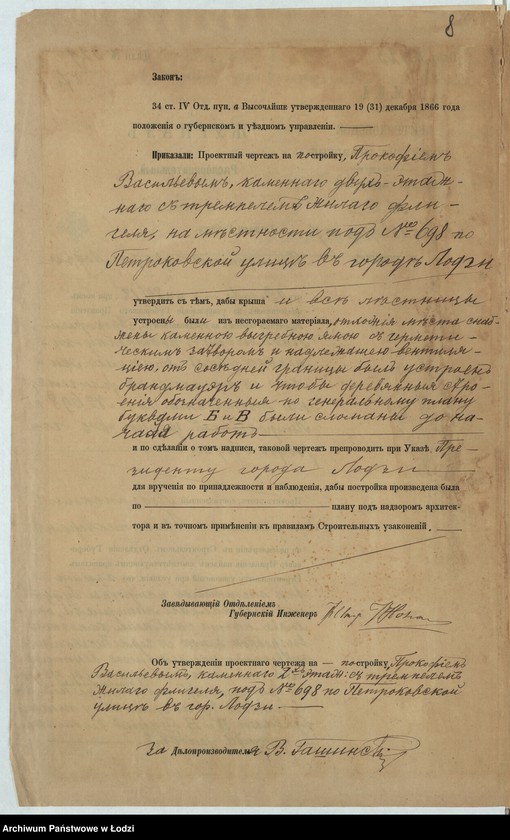 8
Законъ:
34 ст. IV Отд. пун. а Высочайше утвержденнаго 19 (31) декабря 1866 года
положенія о губернскомъ и уѣздномъ управленіи.
Приказали: Проектный чертежъ на постройку, Прокофіемъ
Васильевымъ, каменнаго двухъ-этаж-
наго съ тремпелемъ жилаго фли-
геля, на мѣстности подъ № 698 по
Петроковской улицѣ въ городѣ Лодзи
утвердить съ тѣмъ, дабы крыша и всѣ лѣстницы
устроены были изъ несгораемаго матеріала, отхожія мѣста снаб-
жены каменною выгребною ямою съ гермети-
ческимъ затворомъ и надлежащею вентиля-
ціею, отъ сосѣдней границы былъ устроенъ
брандмауэръ и чтобы деревянныя стро-
енія обозначенныя по генеральному плану
буквами Б и В были сломаны до на-
чала работъ
и по сдѣланіи о томъ надписи, таковой чертежъ препроводить при Указѣ Пре-
зиденту города Лодзи
для врученія по принадлежности и наблюденія, дабы постройка произведена была
по плану подъ надзоромъ архитек-
тора и въ точномъ примѣненіи къ правиламъ Строительныхъ узаконеній.
Завѣдывающій Отдѣленіемъ
Губернскій Инженеръ
Объ утвержденіи проектнаго чертежа на — постройку, Прокофіемъ
Васильевымъ, каменнаго 2хъ этаж: съ тремпелемъ
жилаго флигеля, подъ № 698 по Петроковской
улицѣ въ гор. Лодзи
За Дѣлопроизводителя В. Гашинскій
Archiwum Państwowe w Łodzi